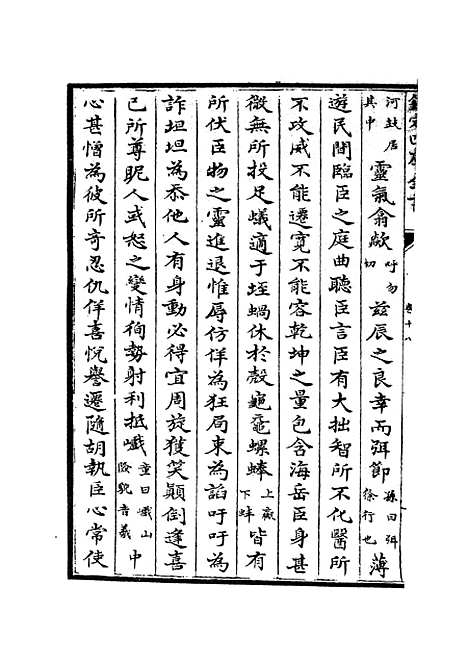 欽定四庫全書
卷十八
河鼓居其中靈氣翕歘呼勿切兹辰之良幸而弭節孫曰弭徐行也薄
遊民間臨臣之庭曲聽臣言臣有大拙智所不化醫所
不攻威不能遷寛不能容乾坤之量包含海岳臣身甚
微無所投足蟻適于垤蝸休於殼龜黿螺蜯上下蚌皆有
所伏臣物之靈進退惟辱彷徉為狂局束為謟吁吁為
詐坦坦為忝他人有身動必得宜周旋獲笑顛倒逢喜
己所尊昵人或怒之變情徇勢射利抵巇童曰巇山險貌音羲中
心甚憎為彼所奇忍仇佯喜悅譽遷隨胡執臣心常使